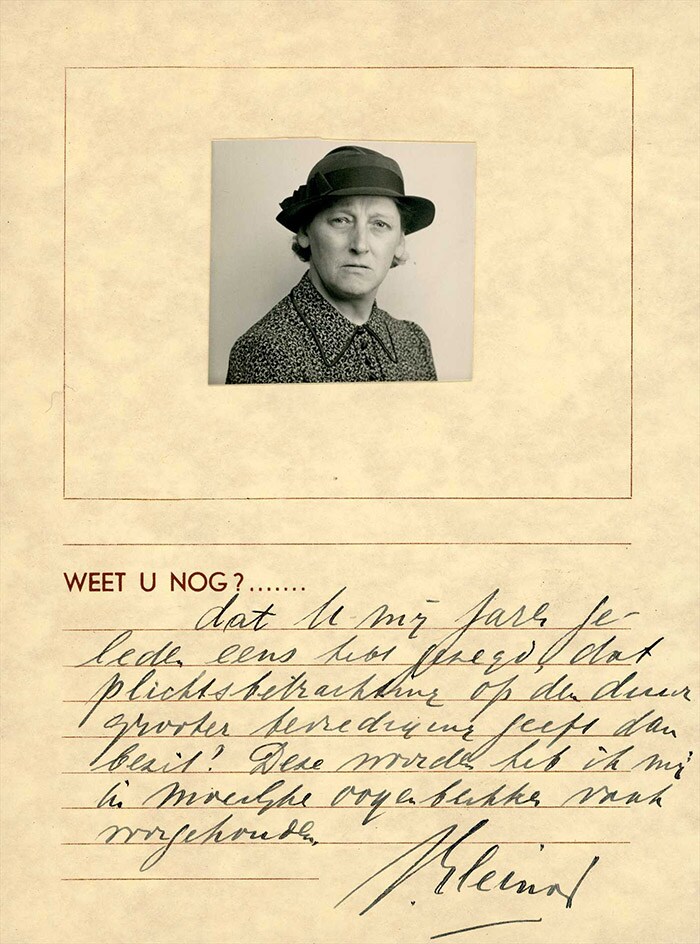 WEET U NOG?.......
dat U mij jaren ge-
leden eens hebt gezegd, dat
plichtsbetrachting op den duur
grooter bevrediging geeft dan
bezit? Deze woorden heb ik mij
in moeilijke oogenblikken vaak
voorgehouden.